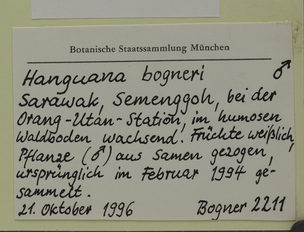 Botanische Staatssammlung München
Hanguana bogneri ♂
Sarawak, Semenggoh, bei der
Orang-Utan-Station, im humosen
Waldboden wachsend. Früchte weißlich,
Pflanze (♂) aus Samen gezogen,
ursprünglich im Februar 1994 ge-
sammelt.
21. Oktober 1996 Bogner 2211